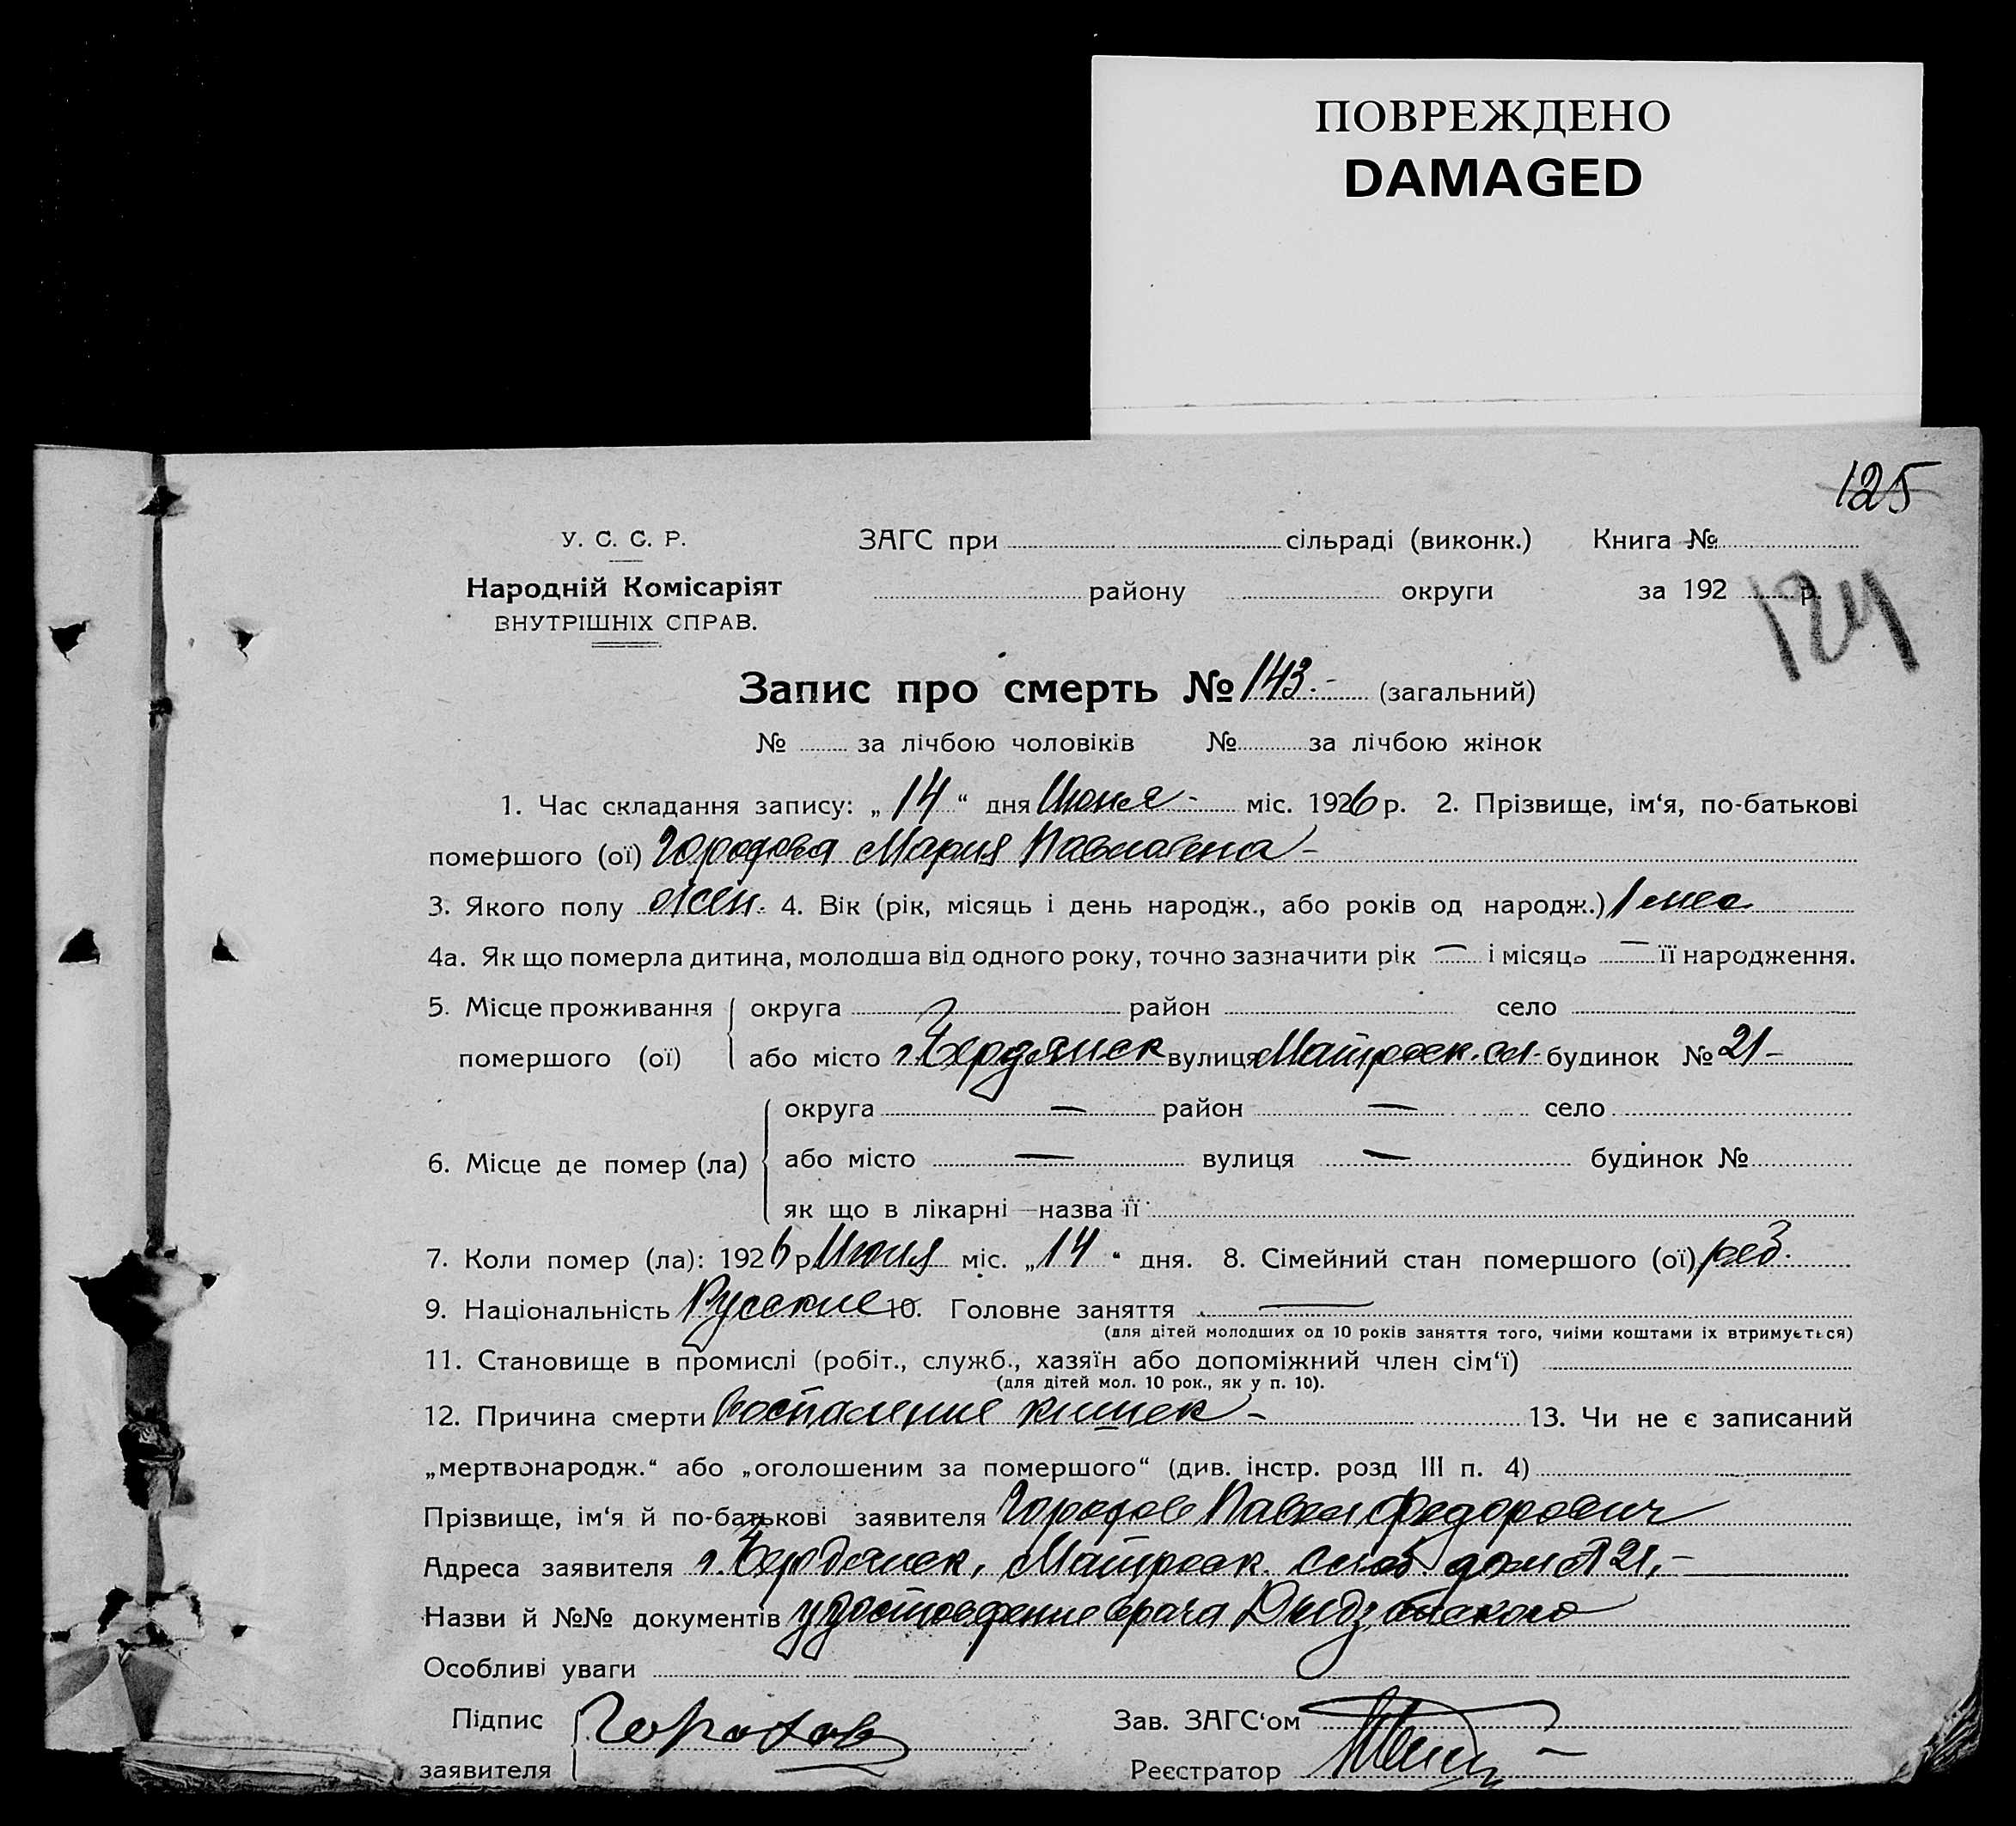 ПОВРЕЖДЕНО
DAMAGED
125
У. С. С. Р.
ЗАГС при сільраді (виконк.) Книга №
Народній Комісаріят
району округи за 192 р.
124
ВНУТРІШНІХ СПРАВ.
Запис про смерть № 143.- (загальний)
№ за лічбою чоловіків № за лічбою жінок
1. Час складання запису: „14“ дня Июня - міс. 1926 р. 2. Прізвище, ім‘я, по-батькові
помершого (ої) Мария Павловна -
3. Якого полу жен. 4. Вік (рік, місяць і день народж., або років од народж.) 1 мес.
4а. Як що померла дитина, молодша від одного року, точно зазначити рік — і місяць — її народження.
5. Місце проживання округа район село
помершого (ої) або місто г. Бердянск вулиця будинок № 21 -
округа — район — село
6. Місце де помер (ла) або місто — вулиця — будинок №
як що в лікарні — назва її
7. Коли помер (ла): 1926 р Июня міс. „14“ дня. 8. Сімейний стан помершого (ої) реб.
9. Національність Русские 10. Головне заняття —
(для дітей молодших од 10 років заняття того, чиїми коштами їх втримується)
11. Становище в промислі (робіт., служб., хазяїн або допоміжний член сім‘ї)
(для дітей мол. 10 рок., як у п. 10).
12. Причина смерти воспаление кишек - 13. Чи не є записаний
„мертвонародж.“ або „оголошеним за помершого“ (див. інстр. розд III п. 4)
Прізвище, ім‘я й по-батькові заявителя Павел Федорович
Адреса заявителя г. Бердянск, слоб. дом № 21, -
Назви й №№ документів удостоверение врача
Особливі уваги
Підпис
Зав. ЗАГС‘ом
заявителя
Реєстратор